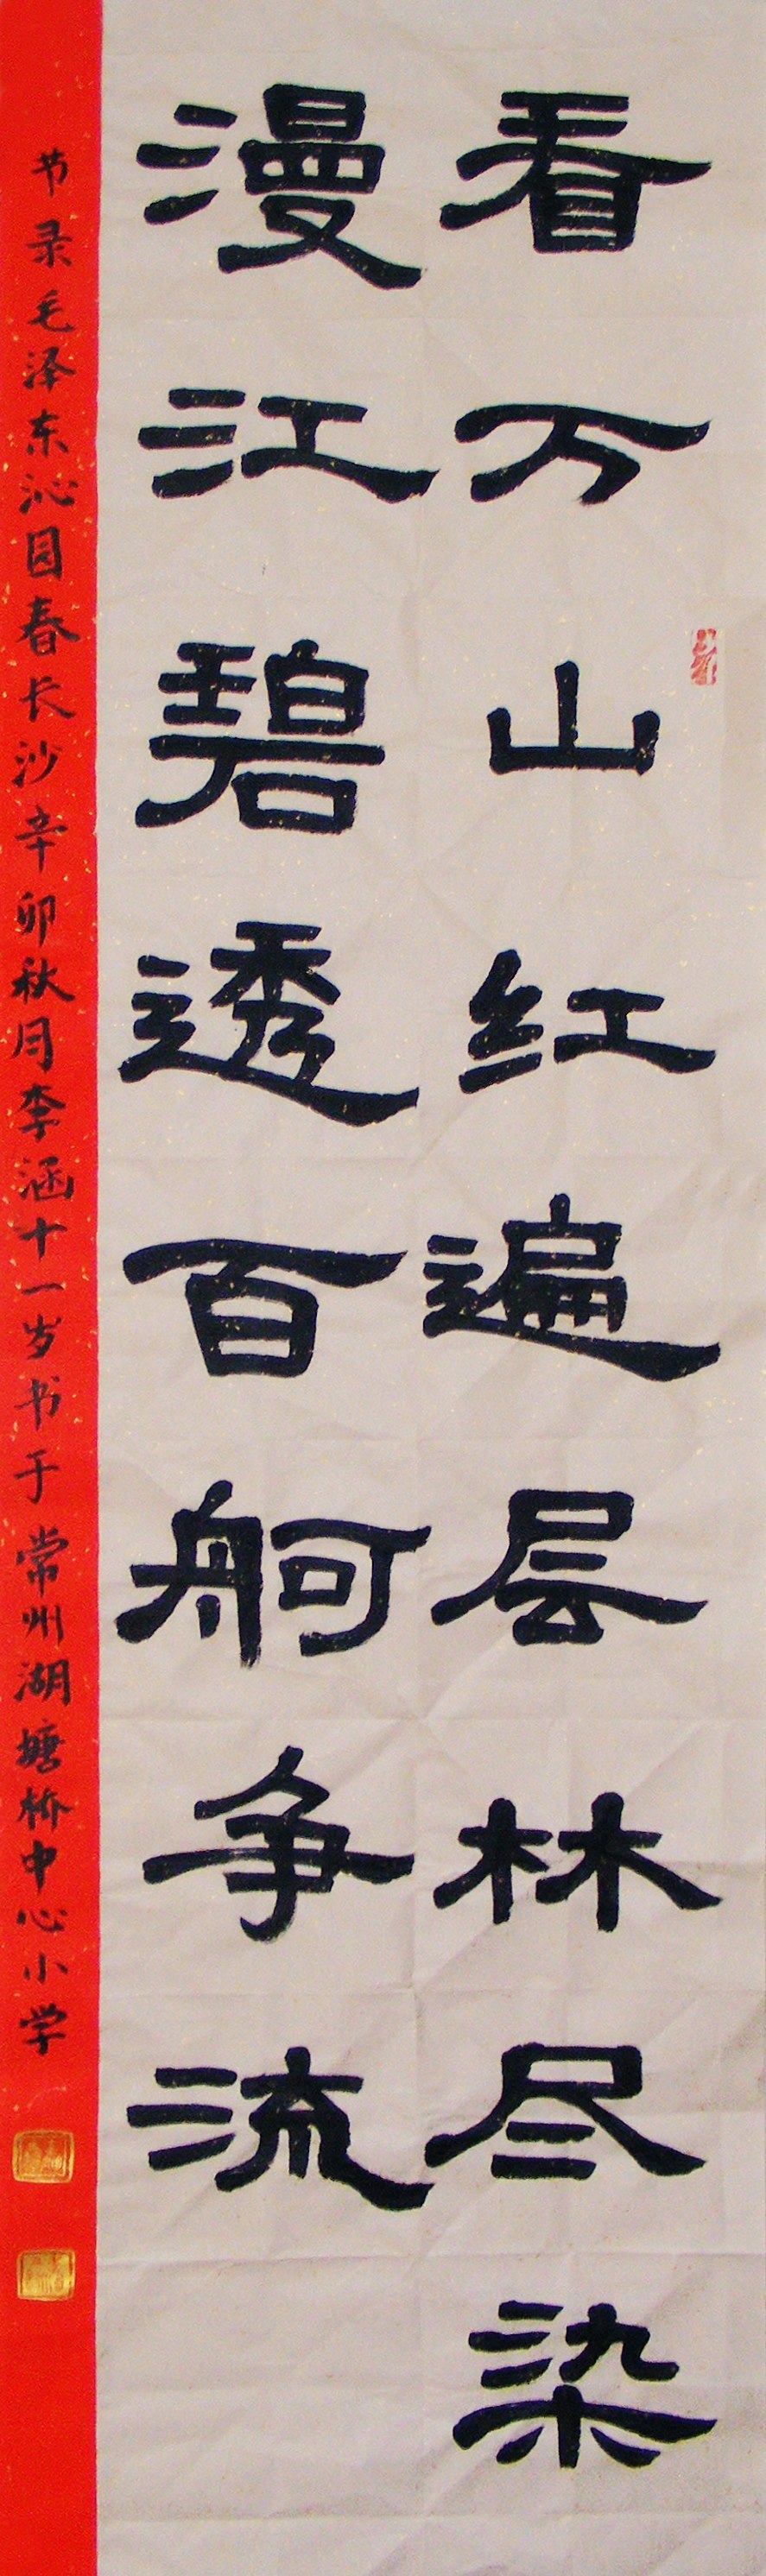 看万山红遍层林尽染
漫江碧透百舸争流
节录毛泽东沁园春长沙辛卯秋月李涵十一岁书于常州湖塘桥中心小学